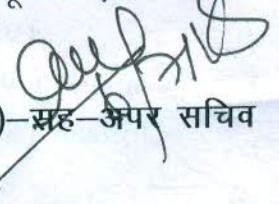 )–सह–अपर सचिव